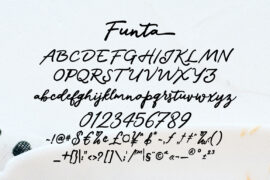 Funta
ABCDEFGHIJKLMN
OPQRSTUVWXYZ
abcdefghijklmnopqrstuvwxyz
0123456789